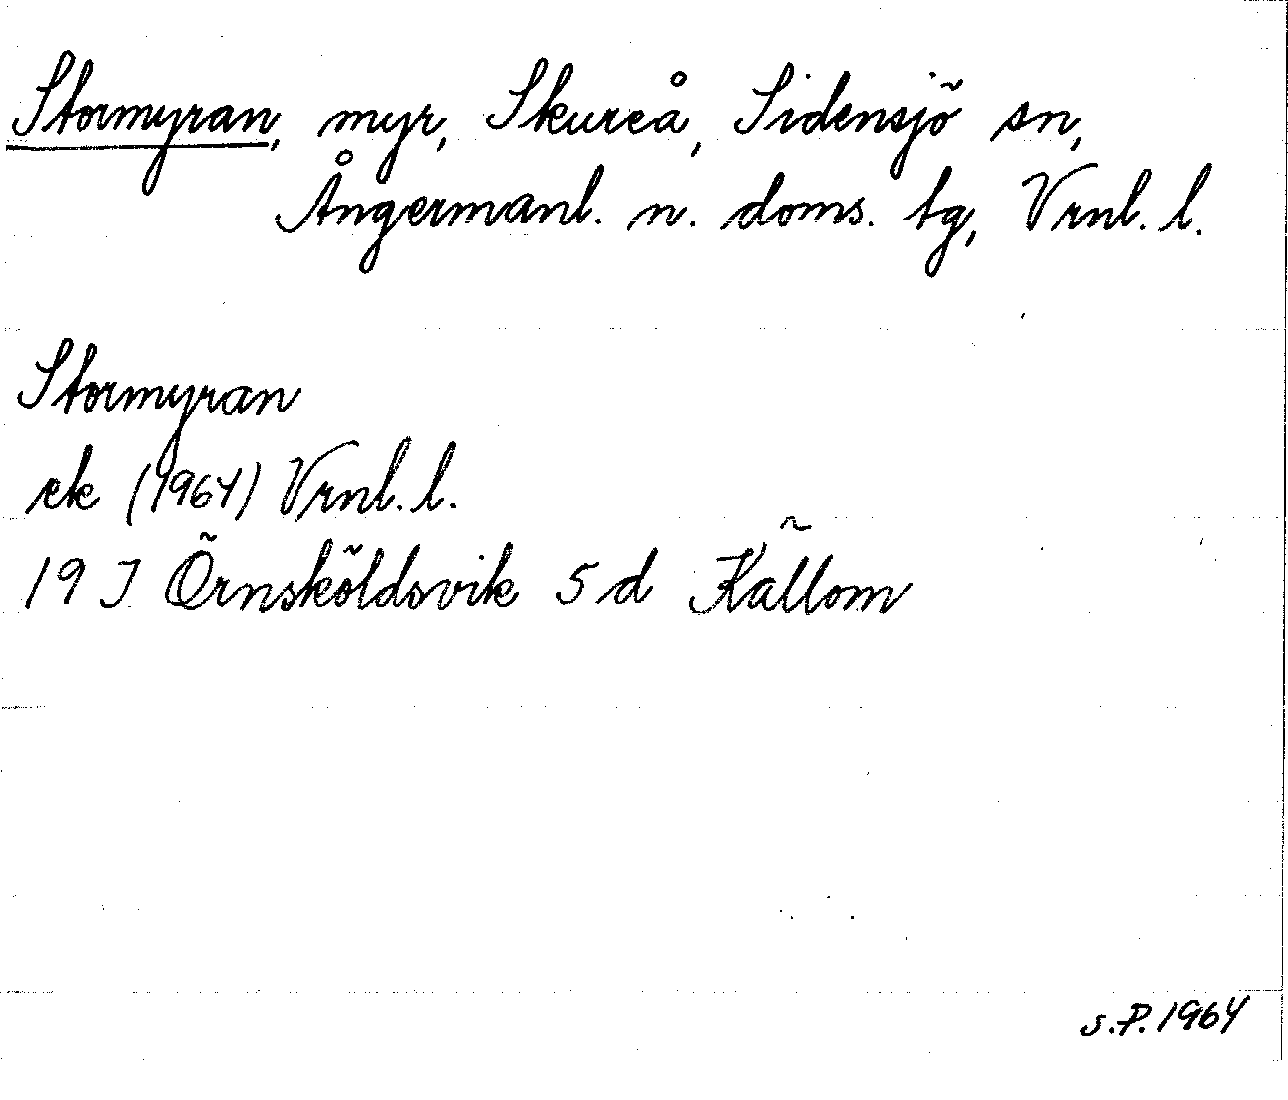 Stormyran, myr, Skureå, Sidensjö sn,
Ångermanl. n. doms. tg, Vrnl. l.
Stormyran
ek (1964) Vrnl. l.
19 J Örnsköldsvik 5 d Källom
s.P. 1964